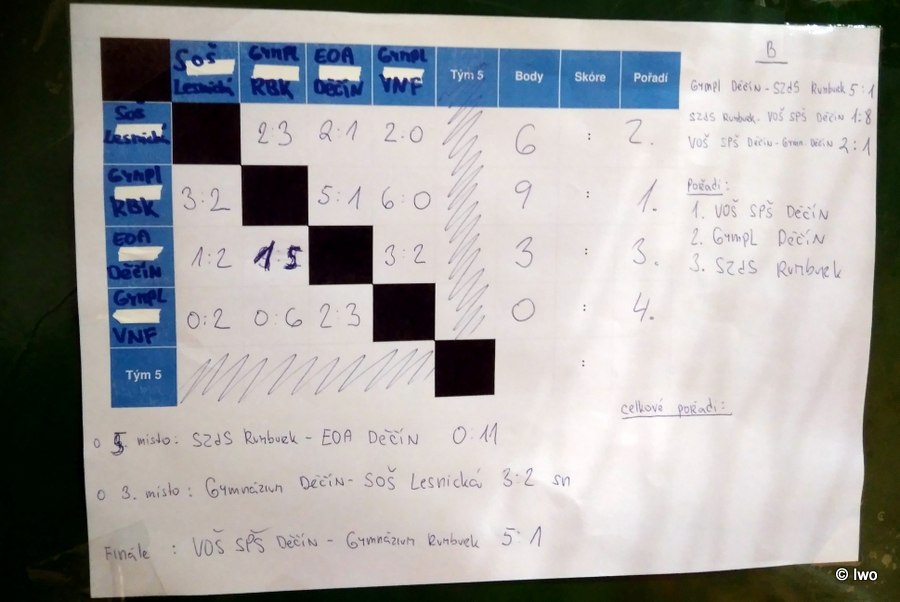 SOŠ Lesnická GYMPL RBK EOA DĚČÍN GYMPL VNF Tým 5 Body Skóre Pořadí
SOŠ Lesnická 2:3 2:1 2:0 6 : 2.
GYMPL RBK 3:2 5:1 6:0 9 : 1.
EOA DĚČÍN 1:2 1:5 3:2 3 : 3.
GYMPL VNF 0:2 0:6 2:3 0 : 4.
Tým 5 :
B
Gympl Děčín - SZdS Rumburk 5:1
SZdS Rumburk - VOŠ SPŠ Děčín 1:8
VOŠ SPŠ Děčín - Gymn Děčín 2:1
Pořadí:
1. VOŠ SPŠ Děčín
2. Gympl Děčín
3. SZdS Rumburk
celkové pořadí:
o 5. místo: SZdS Rumburk - EOA Děčín 0:11
o 3. místo: Gymnázium Děčín - SOŠ Lesnická 3:2 sn
Finále : VOŠ SPŠ Děčín - Gymnázium Rumburk 5:1
© Iwo